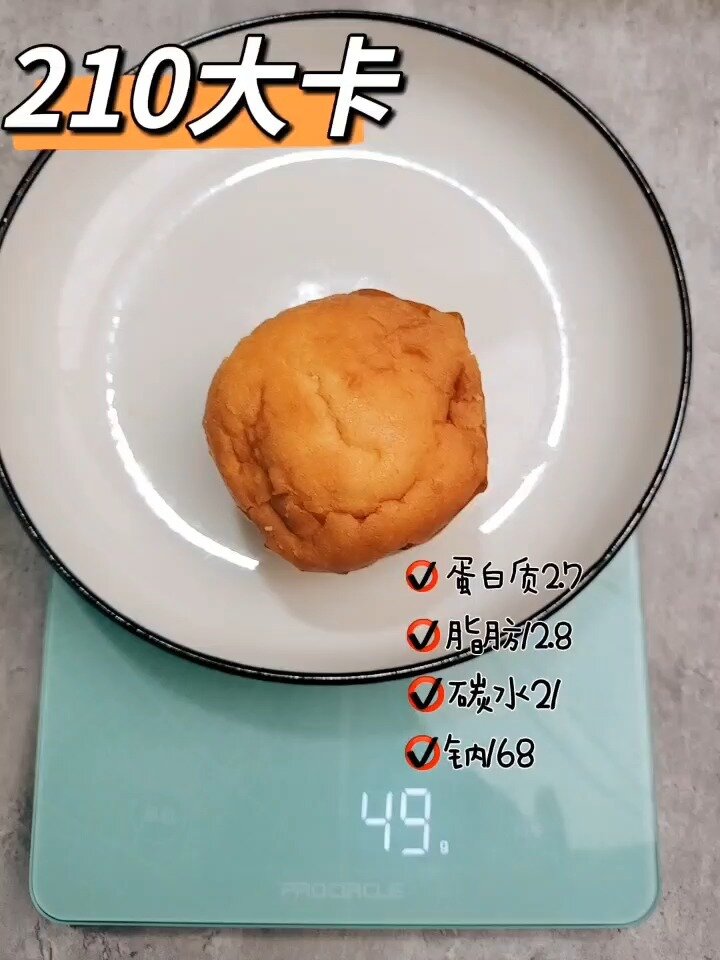 210大卡
蛋白质2.7
脂肪12.8
碳水21
钠168
49g
PROCIRCLE